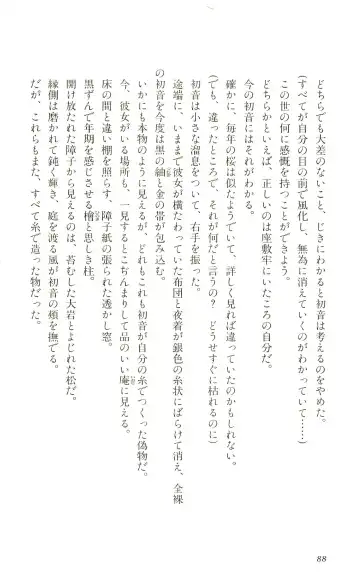 どちらでも大差のないこと、じきにわかると初音は考えるのをやめた。
(すべてが自分の目の前で風化し、無為に消えていくのがわかっていて……)
この世の何に感慨を持つことができよう。
どちらかといえば、正しいのは座敷牢にいたころの自分だ。
今の初音にはそれがわかる。
確かに、毎年の桜は似たようでいて、詳しく見れば違っていたのかもしれない。
(でも、違ったところで、それが何だと言うの? どうせすぐに枯れるのに)
初音は小さな溜息をついて、右手を振った。
途端に、いままで彼女が横たわっていた布団と夜着が銀色の糸状にばらけて消え、全裸
の初音を今度は黒の紬と金の帯が包み込む。
いかにも本物のように見えるが、どれもこれも初音が自分の糸でつくった偽物だ。
今、彼女がいる場所も、一見するとこぢんまりして品のいい庵に見える。
床の間と違い棚を照らす、障子紙の張られた透かし窓。
黒ずんで年期を感じさせる檜と思しき柱。
開け放たれた障子から見えるのは、苔むした大岩とよじれた松だ。
縁側は磨かれて鈍く輝き、庭を渡る風が初音の頬を撫でる。
だが、これらもまた、すべて糸で造った物だった。
88